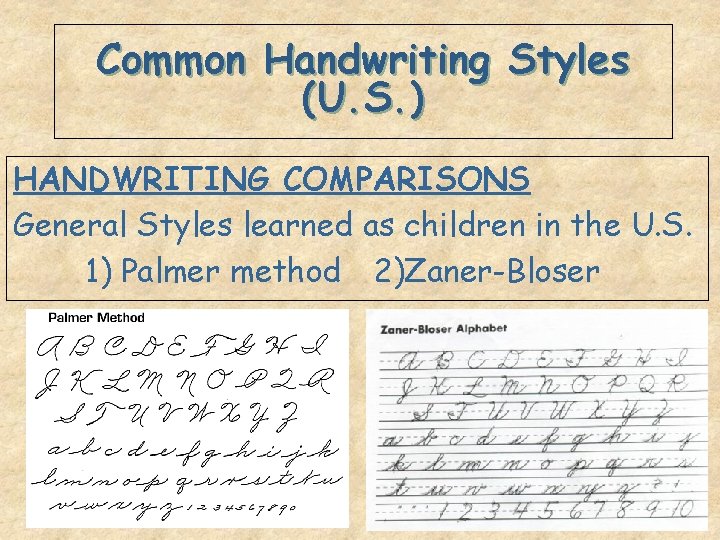 Common Handwriting Styles
(U.S.)
HANDWRITING COMPARISONS
General Styles learned as children in the U.S.
1) Palmer method 2)Zaner-Bloser
Palmer Method
A B C D E F G H I
J K L M N O P Q R
S T U V W X Y Z
a b c d e f g h i j k
l m n o p q r r s t t u
v w x y z 1 2 3 4 5 6 7 8 9 0
Zaner-Bloser Alphabet
A B C D E F G H I
J K L M N O P Q R
S T U V W X Y Z
a b c d e f g h i j
k l m n o p q r s
t u v w x y z
1 2 3 4 5 6 7 8 9 10